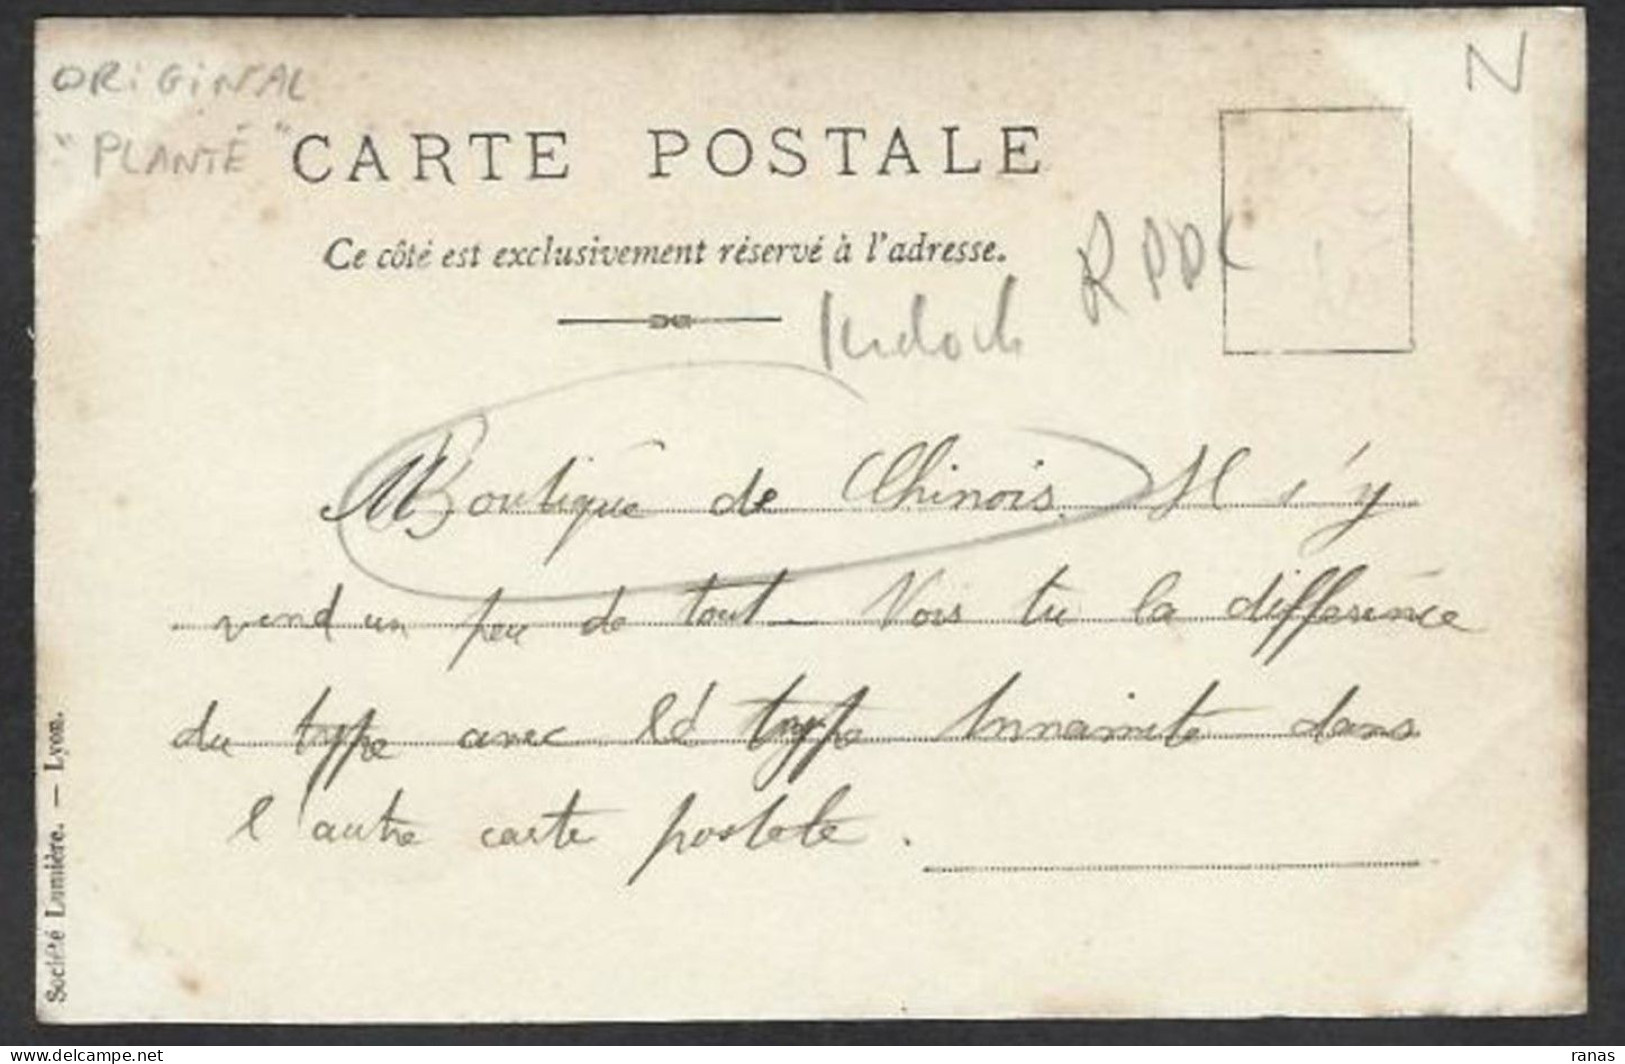 ORIGINAL
"PLANTÉ"
N
CARTE POSTALE
Ce côté est exclusivement réservé à l'adresse.
Indoch
Boutique de Chinois. Il s'y
vend un peu de tout - Vois tu la différence
du type avec le type Annamite dans
l'autre carte postale.
Société Lumière. — Lyon.
delcampe.net
ranas